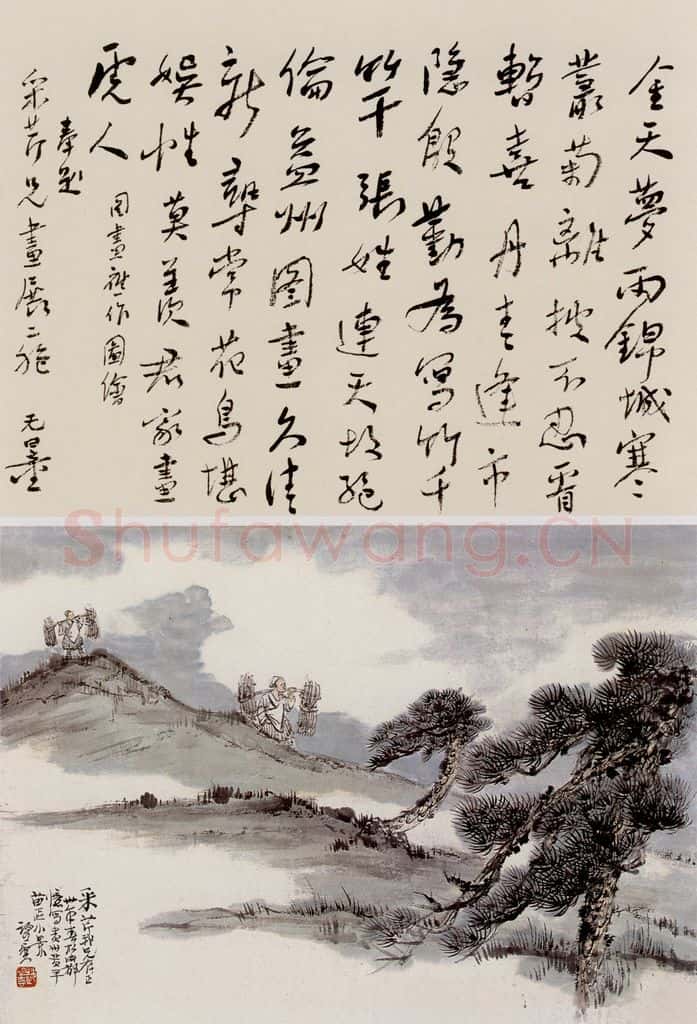 金天夢雨錦城寒
叢菊離披不忍看
暫喜丹青逢市
隱殷勤為寫竹千
竿張姓連天絕
倫益州圖畫久清
新尋常花鳥堪
娛性莫羨君家畫
虎人
作圖繪
奉題
采芹兄畫展二絕 无量
Shufawang.CN
采芹我兄存正
小景